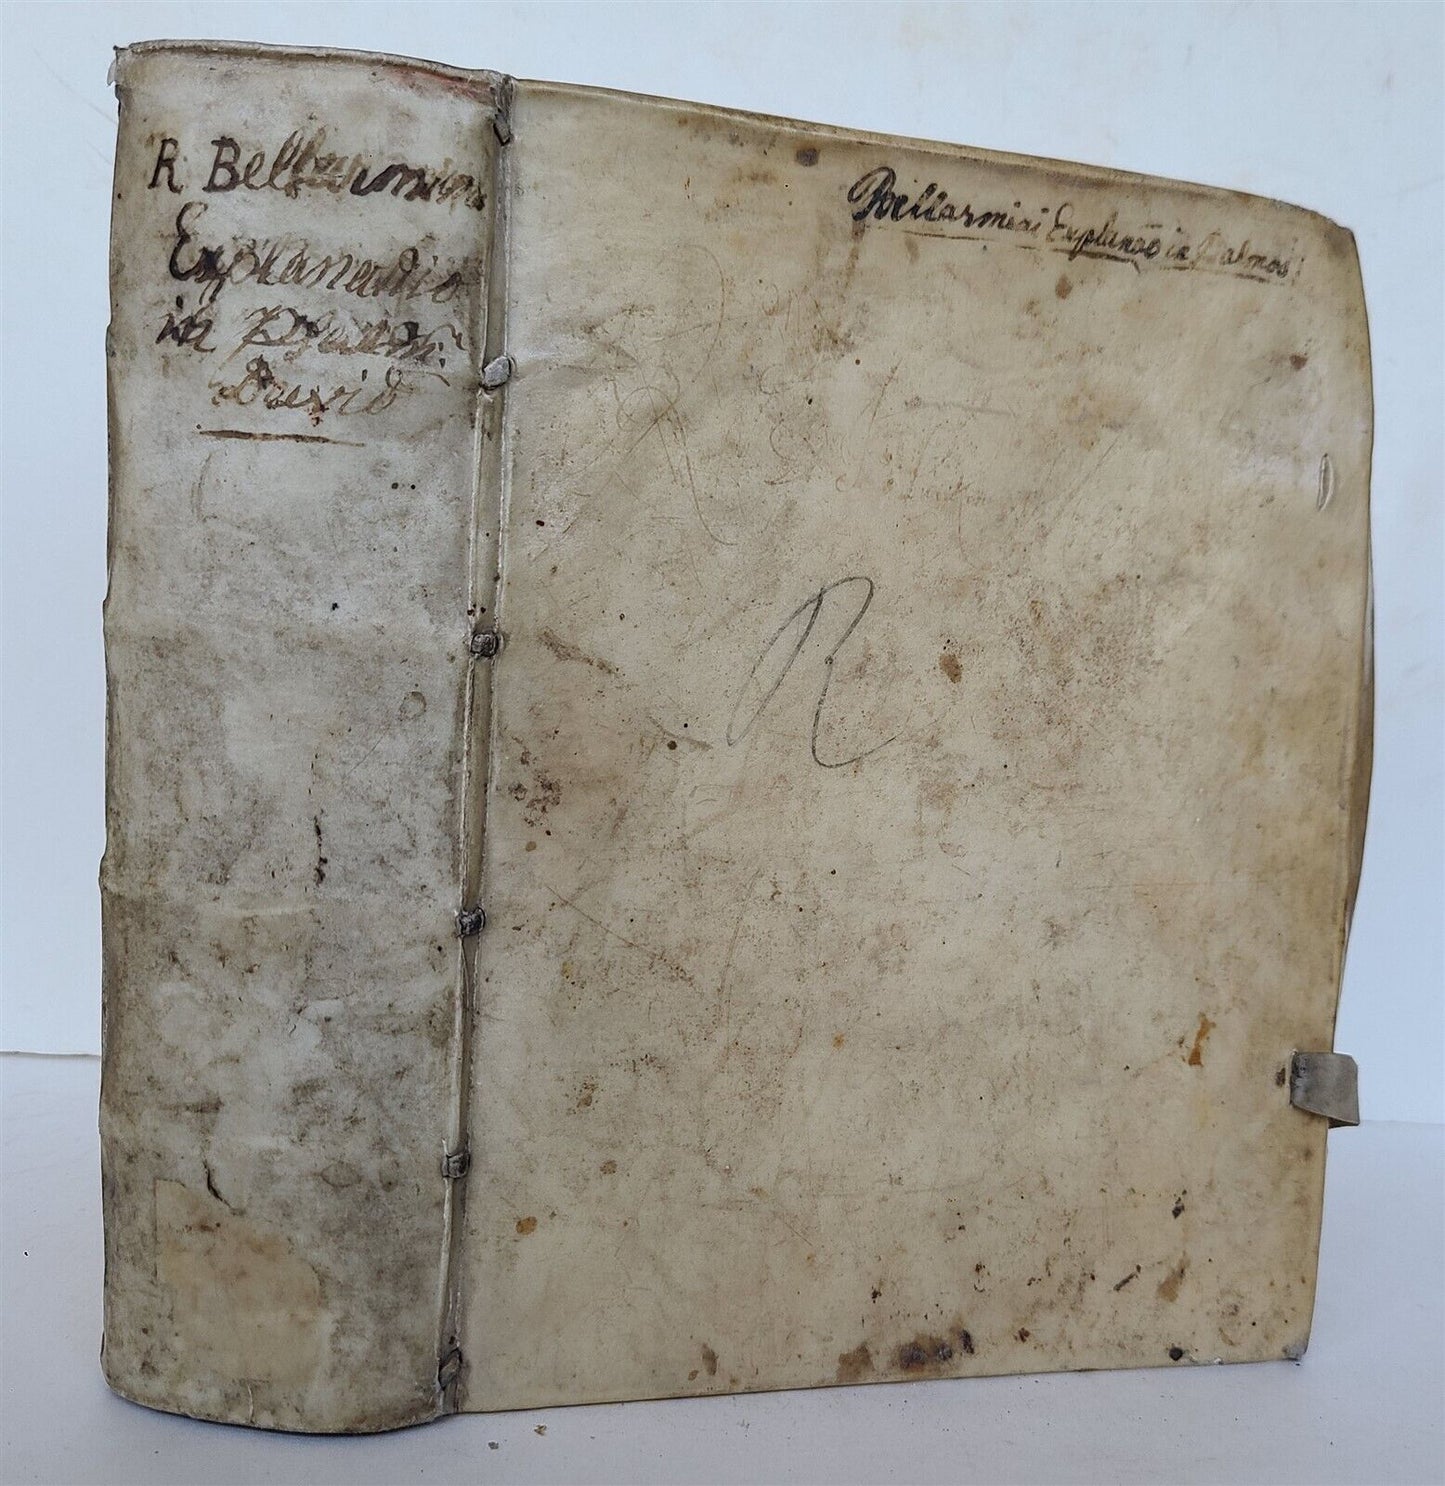 R Bellarmini
Explanatio
in Psalm.
David
Bellarmini Explanaõ in Psalmos
R